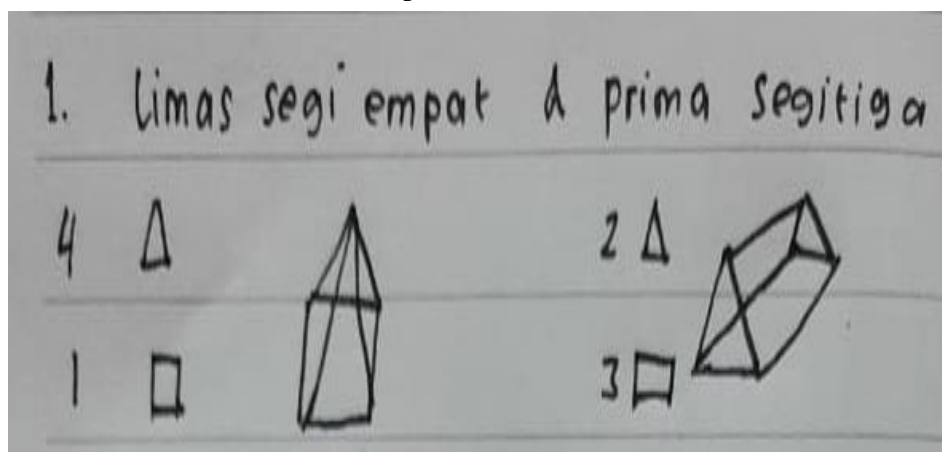 1. limas segi empat d prima segitiga
4 2
1 3